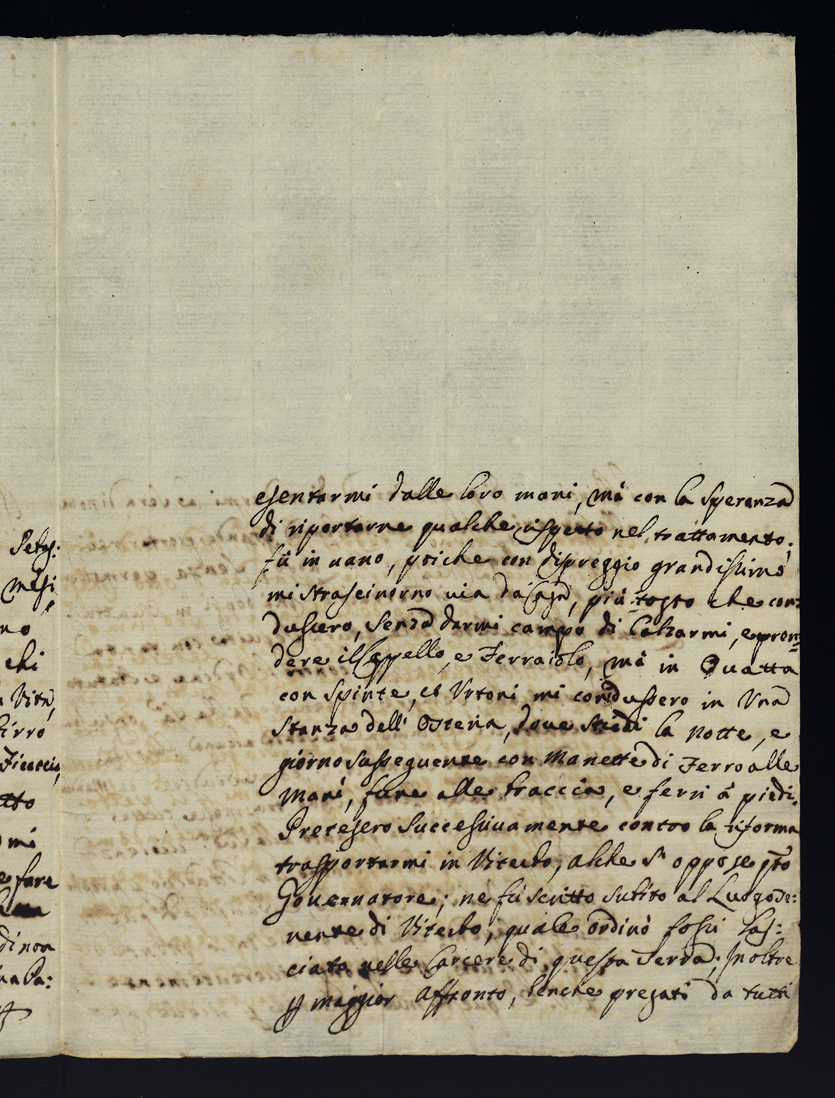 Selv:
Mesi
no
chi
Vita,
birro
Ficoccia,
atto
mi
e fare
di non
una Ca:
esentarmi dalle loro mani, mà con la speranza
di riportarne qualche rispetto nel trattamento;
fù in uano, poiche con dispreggio grandissimo
mi strascinorno uia da Casa, più tosto che con:
dussero, senza darmi campo di Calzarmi, e pren:
dere il Cappello, e Ferraiolo, mà in Ouatta
con spinte, et Urtoni mi condussero in Una
stanza dell' Osteria, doue stiedi la notte, e
giorno susseguente con Manette di Ferro alle
Mani, fune alle braccia, e ferri à piedi.
Pretesero successiuamente contro la riforma
trasportarmi in Viterbo, alche s' oppose qto
Gouernatore; ne fù scritto subito al Luogode:
nente di Viterbo, quale ordinò fossi las:
ciata nelle Carcere di questa Terra; Inoltre
p maggior Affronto, benche pregati da tutti